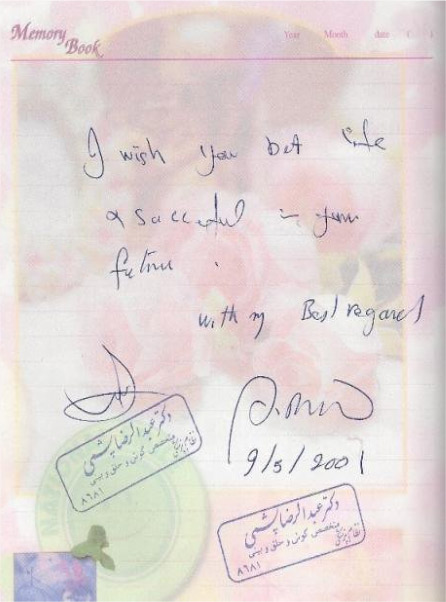 Memory Book
Year Month date ( )
I wish you bet life
& succeful in your
future .
with my Best regard
9/5/2001
دکتر عبدالرضا پشمی
متخصص گوش و حلق و بینی
۸۶۸۱
دکتر عبدالرضا پشمی
متخصص گوش و حلق و بینی
۸۶۸۱